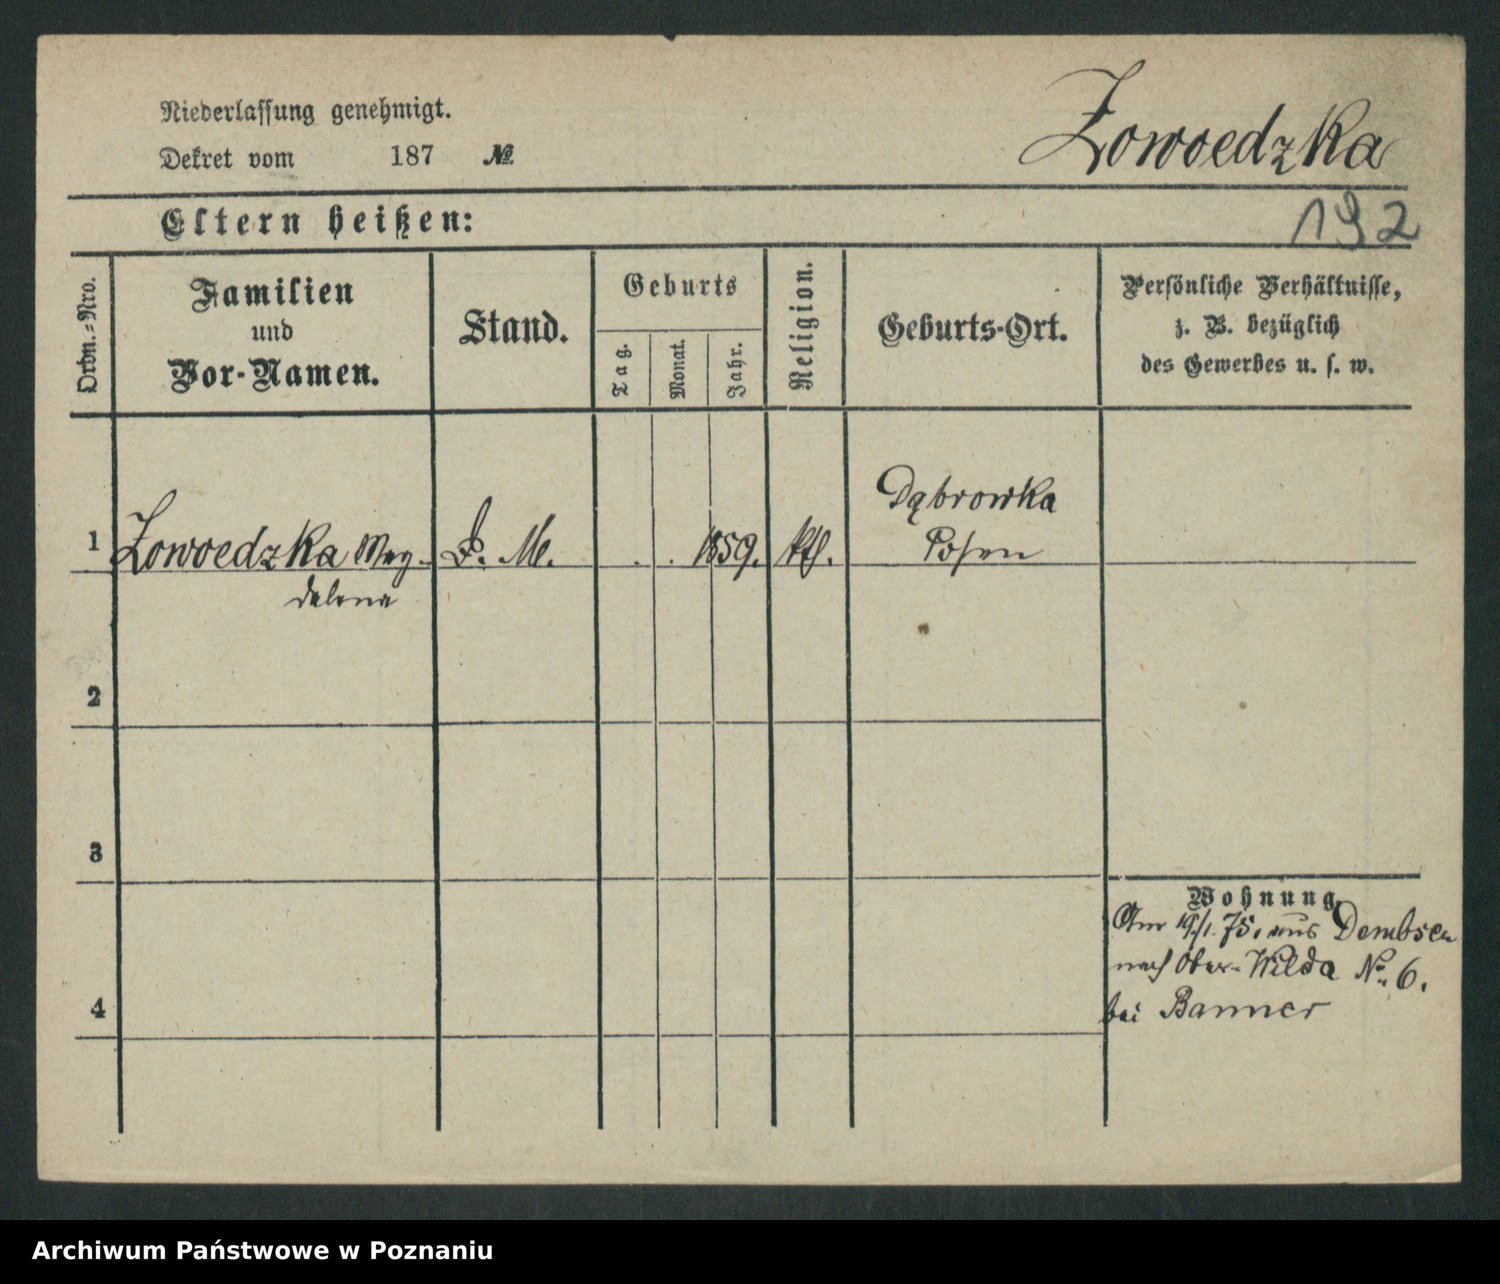 Niederlassung genehmigt.
Dekret vom 187 №
Zowoedzka
Eltern heißen:
192
Ordn.-Nro.
Familien
und
Vor-Namen.
Stand.
Geburts
Tag.
Monat.
Jahr.
Religion.
Geburts-Ort.
Persönliche Verhältnisse,
z. B. bezüglich
des Gewerbes u. s. w.
Dąbrowka
1 Zowoedzka Mag- D. M. . . 1859. kth. Posen
dalena
2
3
Wohnung
Am 19/1. 75. aus Dembsen
nach Ober-Wilda No 6.
bei Banner
4
Archiwum Państwowe w Poznaniu